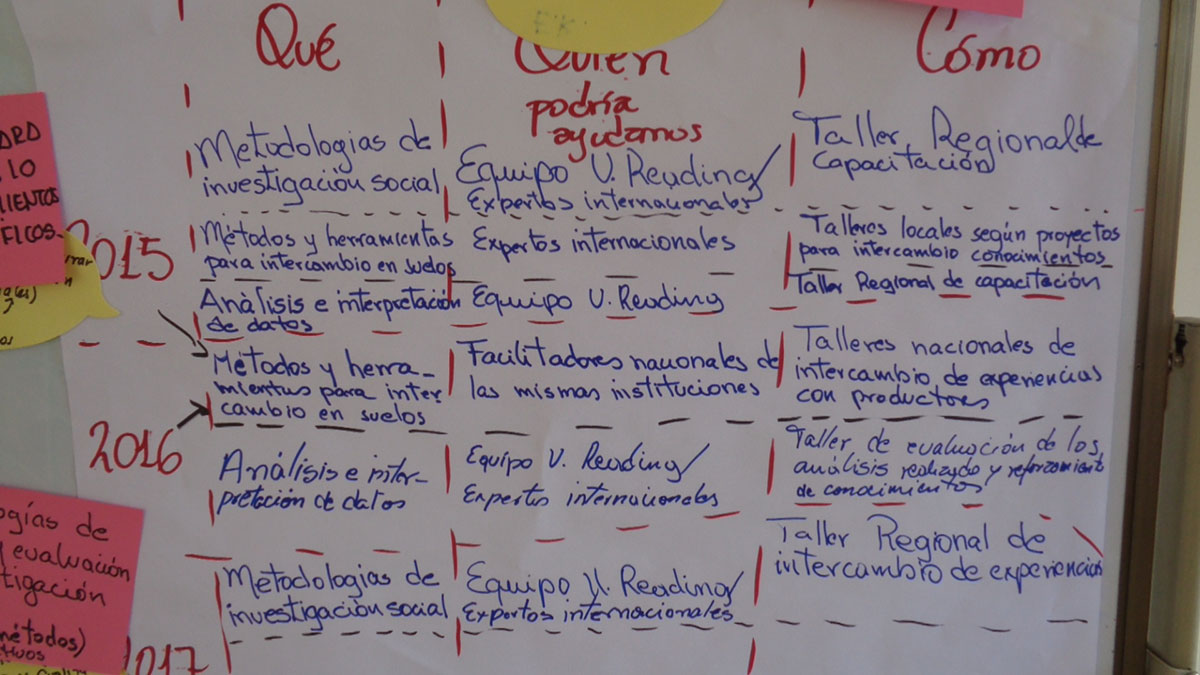 Qué
Quién
podría
ayudarnos
Cómo
Metodologías de
investigación social
Equipo U. Reading/
Expertos internacionales
Taller Regional de
capacitación
2015
Métodos y herramientas
para intercambio en suelos
Expertos internacionales
Talleres locales según proyectos
para intercambio conocimientos
Análisis e interpretación
de datos
Equipo U. Reading
Taller Regional de capacitación
Métodos y herra-
mientas para inter
cambio en suelos
Facilitadores nacionales de
las mismas instituciones
Talleres nacionales de
intercambio de experiencias
con productores
2016
Análisis e inter-
pretación de datos
Equipo U. Reading/
Expertos internacionales
Taller de evaluación de los
análisis realizado y reforzamiento
de conocimientos
Metodologías de
investigación social
Equipo U. Reading/
Expertos internacionales
Taller Regional de
intercambio de experiencias
2017
LO
FICOS.
ogías de
evaluación
tigación
métodos)